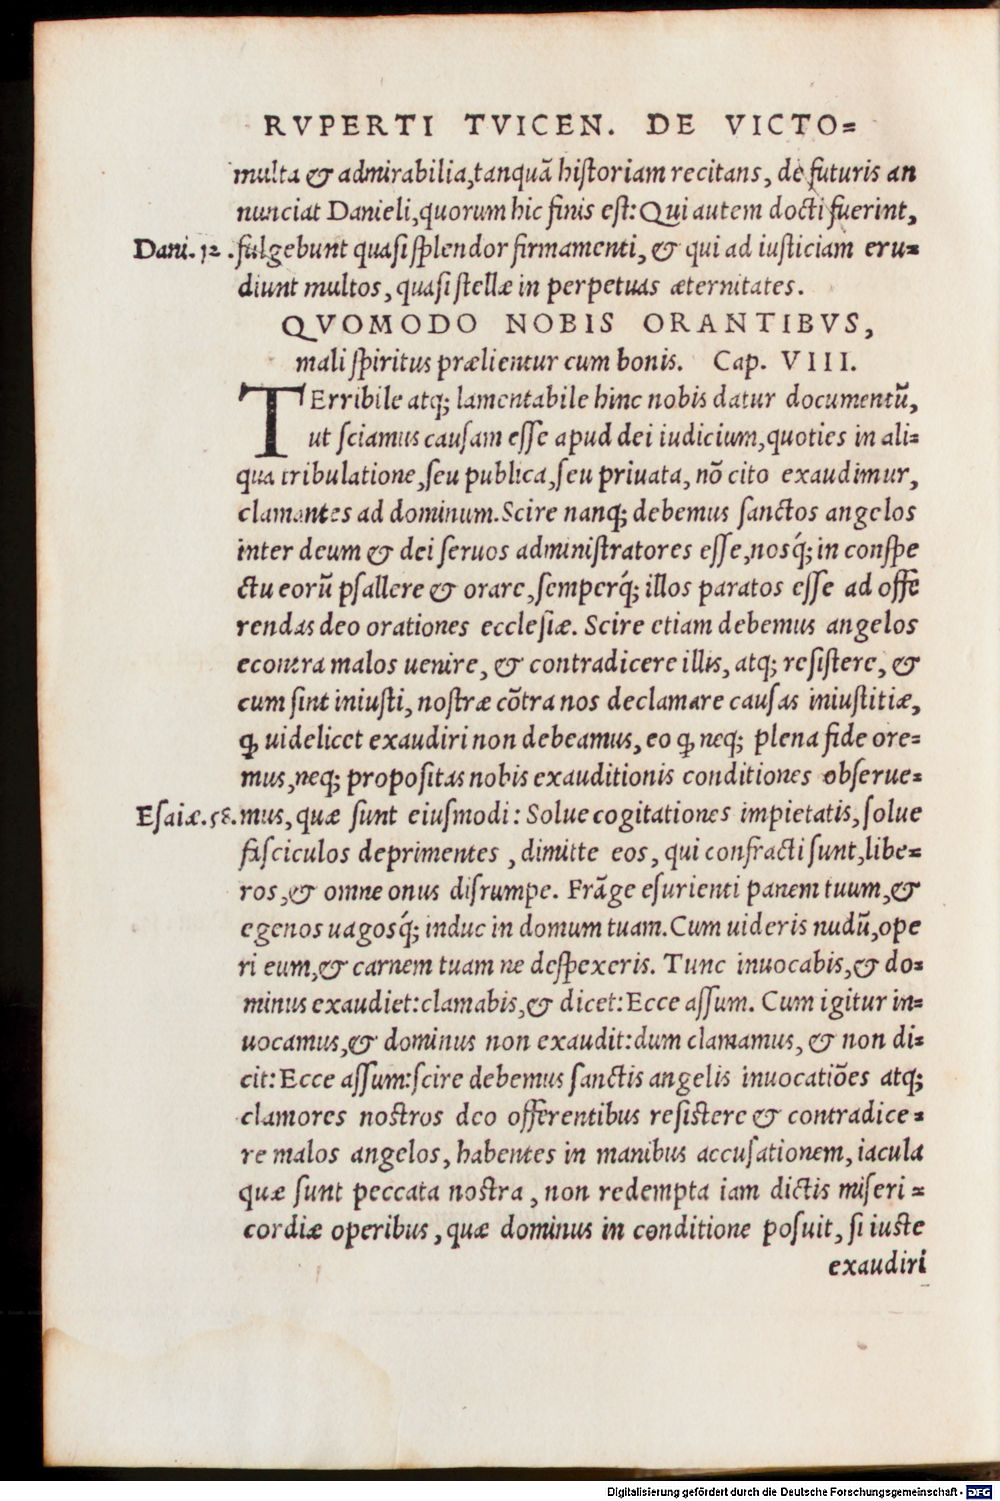 RVPERTI TVICEN. DE VICTO=
multa & admirabilia,tanquã historiam recitans, de futuris an
nunciat Danieli,quorum hic finis est: Qui autem docti fuerint,
Dani. 12. fulgebunt quasi splendor firmamenti, & qui ad iusticiam eru=
diunt multos, quasi stellæ in perpetuas æternitates.
QVOMODO NOBIS ORANTIBVS,
mali spiritus prælientur cum bonis. Cap. VIII.
TErribile atq; lamentabile hinc nobis datur documentũ,
ut sciamus causam esse apud dei iudicium,quoties in ali=
qua tribulatione,seu publica,seu priuata, nõ cito exaudimur,
clamantes ad dominum.Scire nanq; debemus sanctos angelos
inter deum & dei seruos administratores esse,nosq́; in conspe
ctu eorũ psallere & orare,semperq́; illos paratos esse ad offe
rendas deo orationes ecclesiæ. Scire etiam debemus angelos
econtra malos uenire, & contradicere illis, atq; resistere, &
cum sint iniusti, nostræ cõtra nos declamare causas iniustitiæ,
ꝙ uidelicet exaudiri non debeamus, eo ꝙ neq; plena fide ore=
mus,neq; propositas nobis exauditionis conditiones obserue=
Esaiæ.58. mus, quæ sunt eiusmodi: Solue cogitationes impietatis, solue
fasciculos deprimentes , dimitte eos, qui confracti sunt,libe=
ros,& omne onus disrumpe. Frãge esurienti panem tuum,&
egenos uagosq́; induc in domum tuam.Cum uideris nudũ,ope
ri eum,& carnem tuam ne despexeris. Tunc inuocabis,& do=
minus exaudiet:clamabis,& dicet:Ecce assum. Cum igitur in=
uocamus,& dominus non exaudit:dum clamamus, & non di=
cit:Ecce assum:scire debemus sanctis angelis inuocatiões atq;
clamores nostros deo offerentibus resistere & contradice=
re malos angelos, habentes in manibus accusationem, iacula
quæ sunt peccata nostra , non redempta iam dictis miseri=
cordiæ operibus, quæ dominus in conditione posuit, si iuste
exaudiri
Digitalisierung gefördert durch die Deutsche Forschungsgemeinschaft - DFG